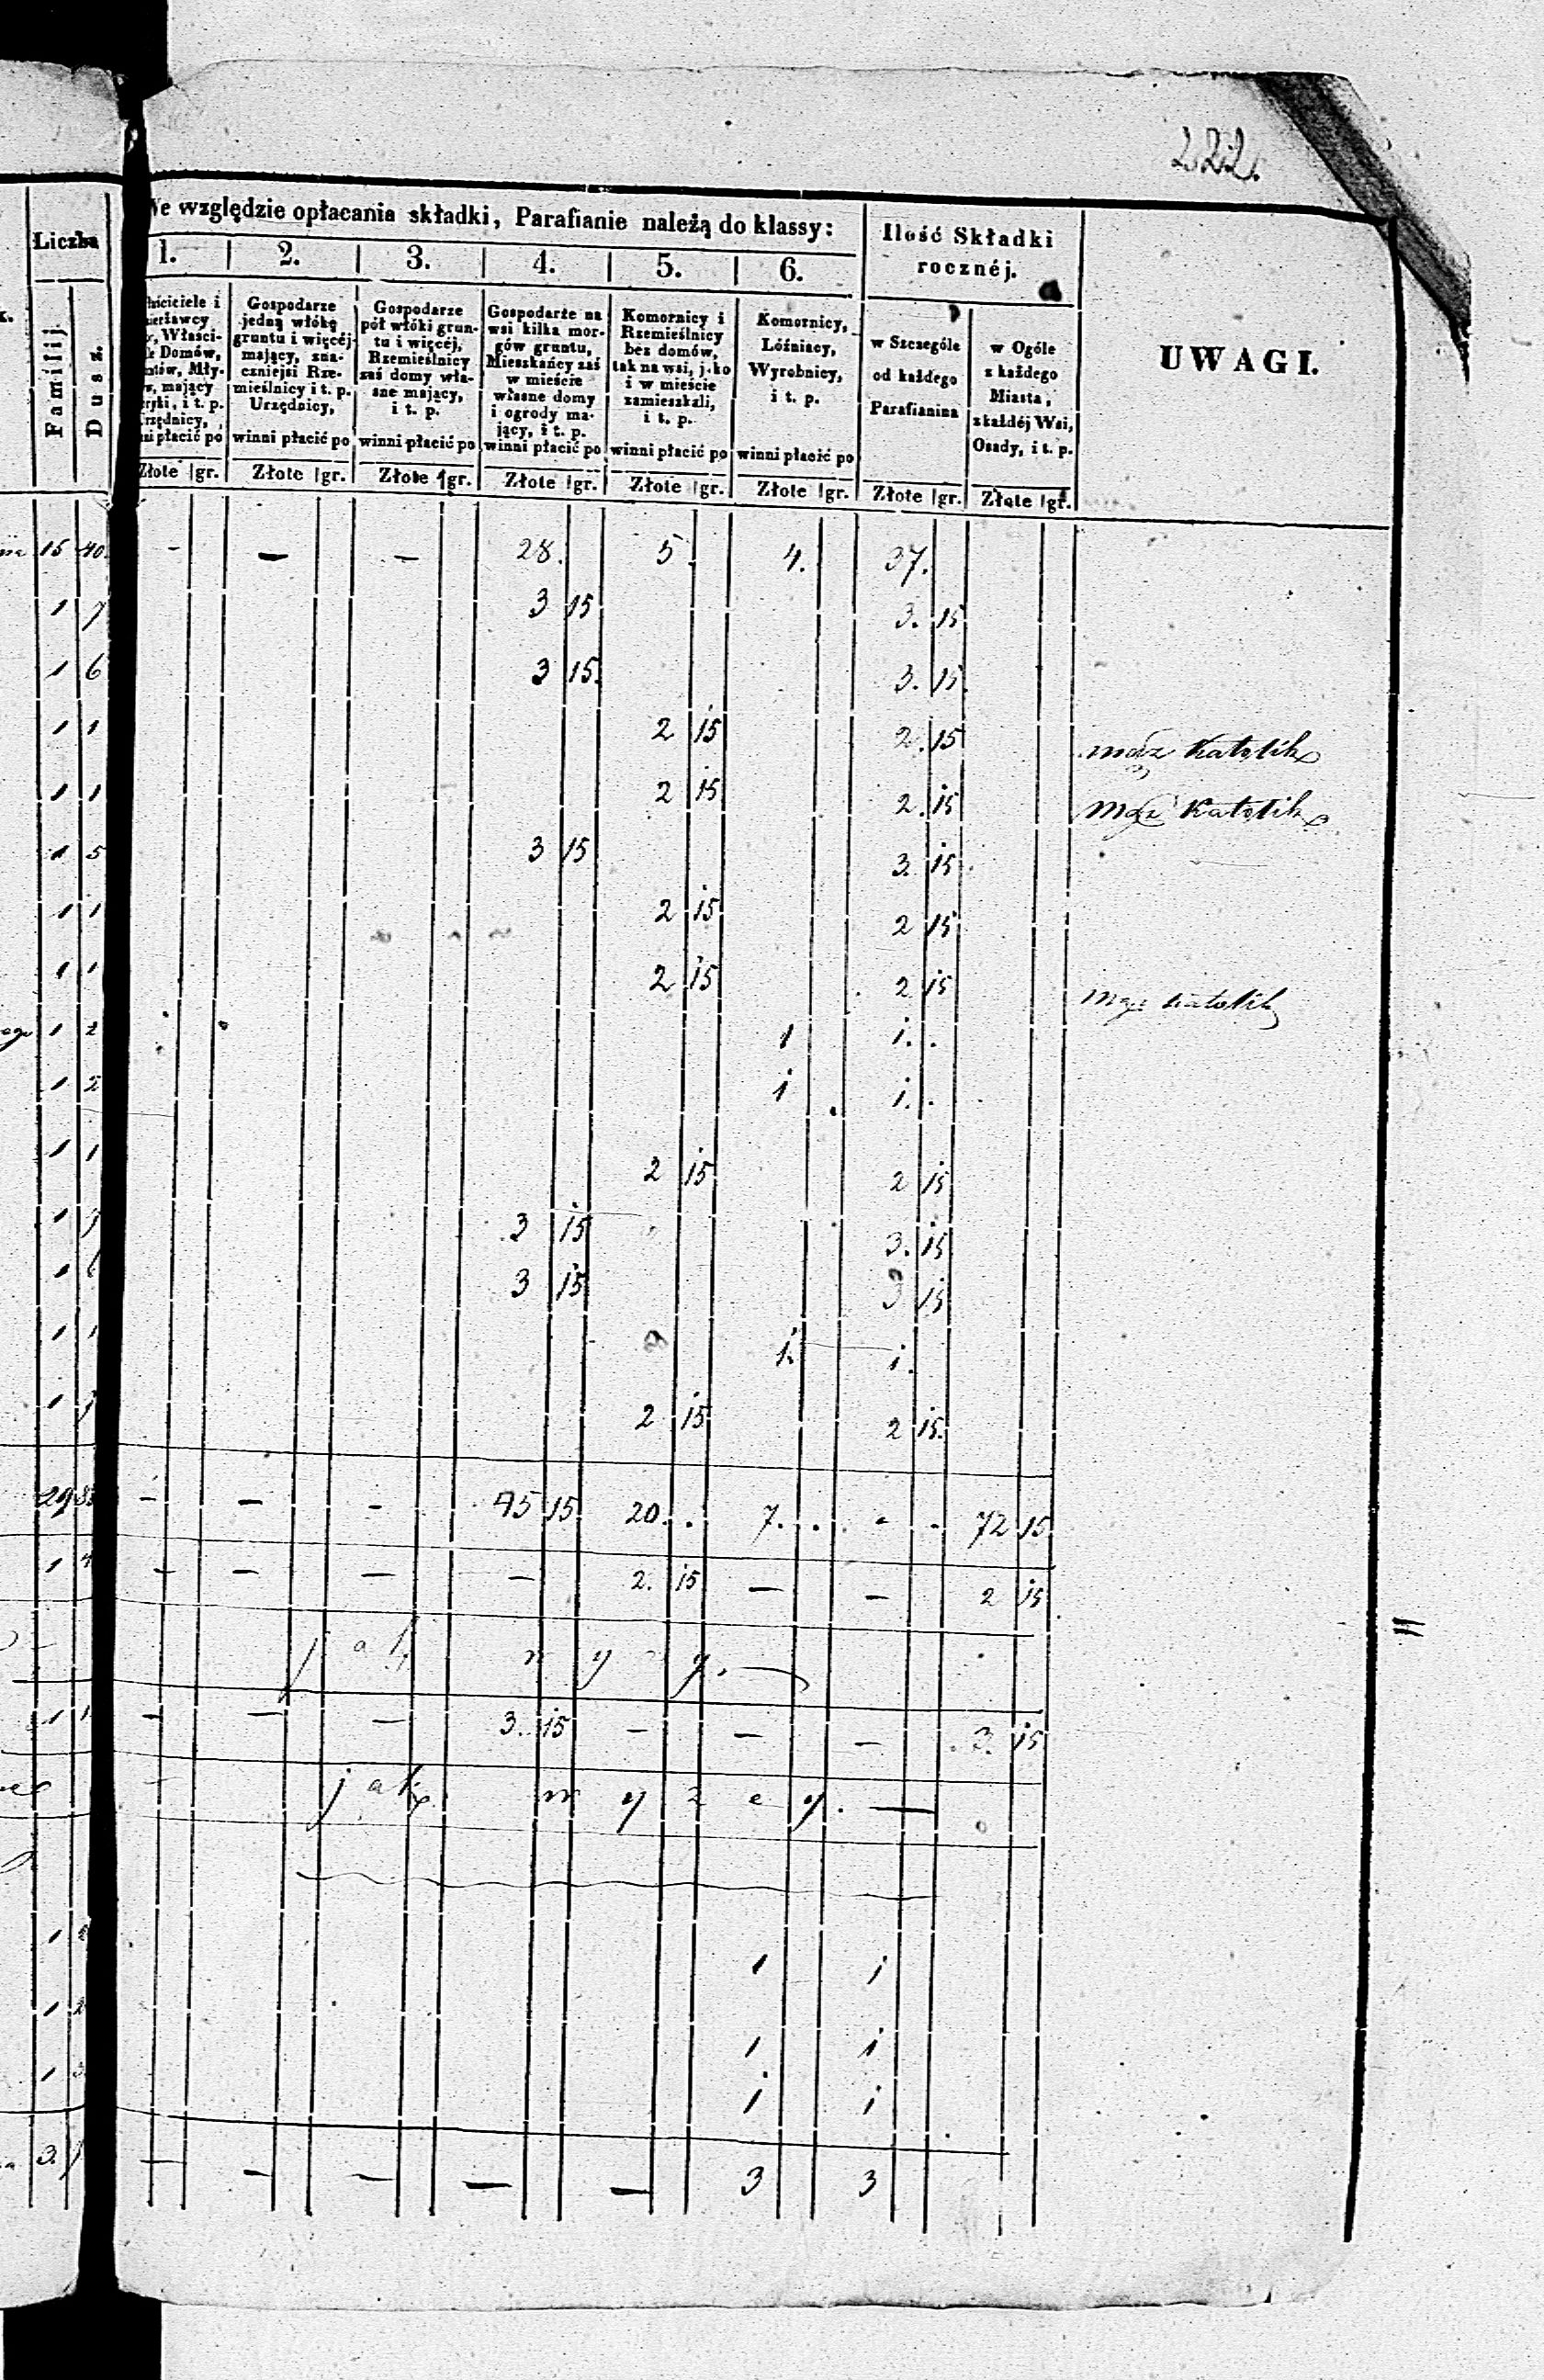 222.
We względzie opłacania składki, Parafianie należą do klassy:
Liczba
Ilość Składki
rocznéj.
1. 2. 3. 4. 5. 6.
Familij.
Dusz.
Gospodarze
jedną włókę
gruntu i więcéj
mający, zna-
czniejsi Rze-
mieślnicy i t. p.
Urzędnicy,
winni płacić po
Gospodarze
pół włóki grun-
tu i więcéj,
Rzemieślnicy
zaś domy wła-
sne mający,
i t. p.
winni płacić po
Gospodarze na
wsi kilka mor-
gów gruntu,
Mieszkańcy zaś
w mieście
własne domy
i ogrody ma-
jący, i t. p.
winni płacić po
Komornicy i
Rzemieślnicy
bez domów,
tak na wsi, jako
i w mieście
zamieszkali,
i t. p.
winni płacić po
Komornicy,
Lóźniacy,
Wyrobnicy,
i t. p.
winni płacić po
w Szczególe
od każdego
Parafianina
w Ogóle
z każdego
Miasta,
z każdéj Wsi,
Osady, i t. p.
UWAGI.
Złote gr. Złote gr. Złote gr. Złote gr. Złote gr. Złote gr. Złote gr. Złote gr.
15 40. - - - 28. 5. 4. 37.
1 7 3 15 3. 15
1 6 3 15. 3. 15.
1 1 2 15 2. 15 mąz Katolik
1 1 2 15 2. 15 mąz Katolik
1 5 3 15 3. 15.
1 1 2 15 2 15
1 1 2 15 2 15 mąz Katolik
1 2 1 1. .
1 2 1 1. .
1 1 2 15 2 15
1 3 15 3. 15
1 3 15 3 15
1 1 1. 1.
1 2 15 2 15.
29 - - - 45 15 20. . 7. . - - 72 15
1 - - - - 2. 15 - - 2 15
jak
1 - - - 3. 15 - - - 3. 15
jak wyzey. -
1 1 1
1 2 1 1
1 1 1
3. - - - - - 3 3